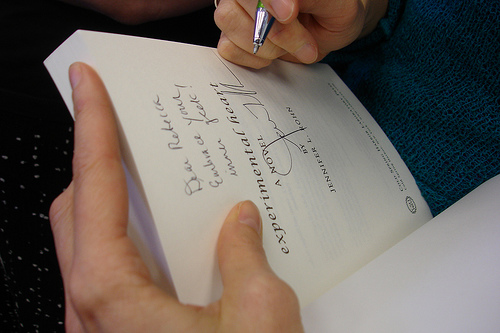 Dear Rebecca
Embrace your
inner geek!
experimental heart
A NOVEL
BY
JENNIFER L. ROHN